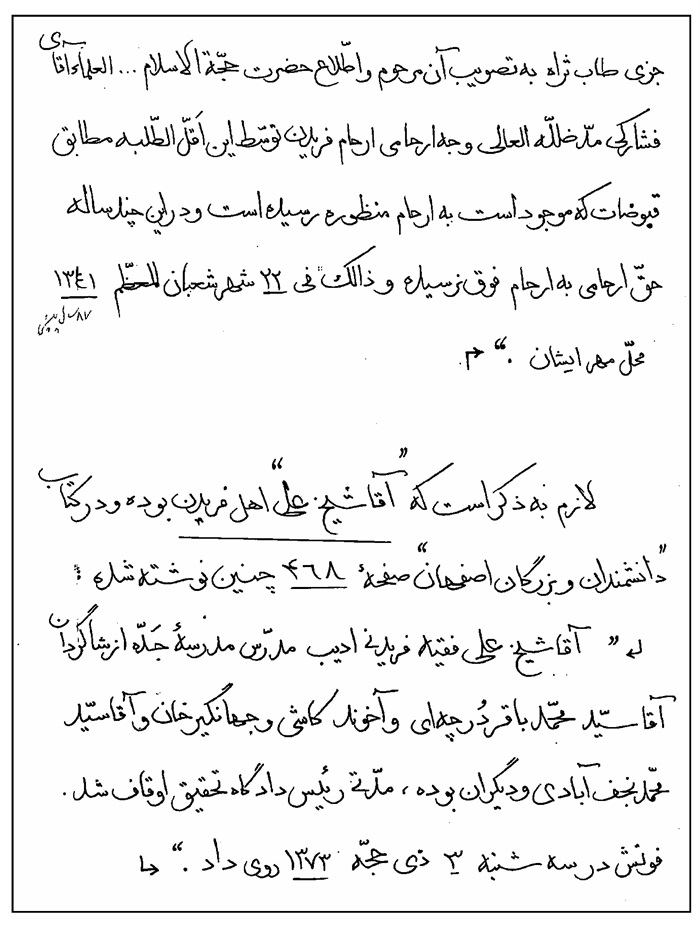 جزی طاب ثراه به تصویب آن مرحوم و اطّلاع حضرت حجّة الاسلام ... العلماء آقای
فشارکی مدّ ظلّه العالی وجه ارحامی ارحام فریدن توسّط این اَقلّ الطّلبه مطابق
قبوضات که موجود است به ارحام منظوره رسیده است و در این چند ساله
حقّ ارحامی به ارحام فوق نرسیده و ذالک فی ۲۲ شهر شعبان المعظّم ۱۳٤۱
۸۷ سال پیش
محلّ مهر ایشان .“
لازم به ذکر است که ”آقا شیخ علی“ اهل فریدن بوده و در کتاب
”دانشمندان و بزرگان اصفهان“ صفحهٔ ۴٦۸ چنین نوشته شده :
” آقا شیخ علی فقیه فریدنی ادیب مدرّس مدرسهٔ جَدّه از شاگردان
آقا سیّد محمّد باقر دُرچه‌ای و آخوند کاشی و جهانگیرخان و آقا سیّد
محمّد نجف آبادی و دیگران بوده ، مدّتی رئیس دادگاه تحقیق اوقاف شد .
فوتش در سه شنبه ۳ ذی حجّه ۱۳۷۳ روی داد .“